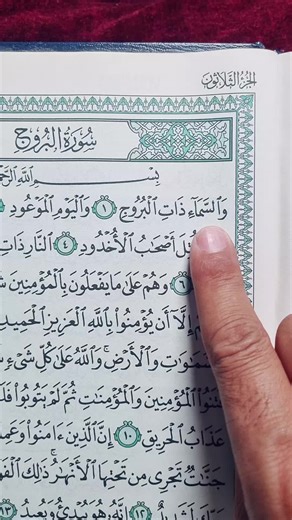 الجزء الثلاثون
سُورَةُ الْبُرُوجِ
بِسْمِ اللَّهِ
وَالسَّمَآءِ ذَاتِ الْبُرُوجِ ١ وَالْيَوْمِ الْمَوْعُودِ
أَصْحَٰبُ الْأُخْدُودِ ٤ النَّارِ ذَاتِ
٦ وَهُمْ عَلَىٰ مَا يَفْعَلُونَ بِالْمُؤْمِنِينَ
إِلَّآ أَن يُؤْمِنُوا۟ بِاللَّهِ الْعَزِيزِ الْحَمِيدِ
وَالْأَرْضِ ۚ وَاللَّهُ عَلَىٰ كُلِّ شَىْءٍ
الْمُؤْمِنِينَ وَالْمُؤْمِنَٰتِ ثُمَّ لَمْ يَتُوبُوا۟
عَذَابُ الْحَرِيقِ ١٠ إِنَّ الَّذِينَ ءَامَنُوا۟
جَنَّٰتٌ تَجْرِى مِن تَحْتِهَا الْأَنْهَٰرُ ۚ ذَٰلِكَ
١٢ إِنَّهُۥ هُوَ يُبْدِئُ وَيُعِيدُ ١٣